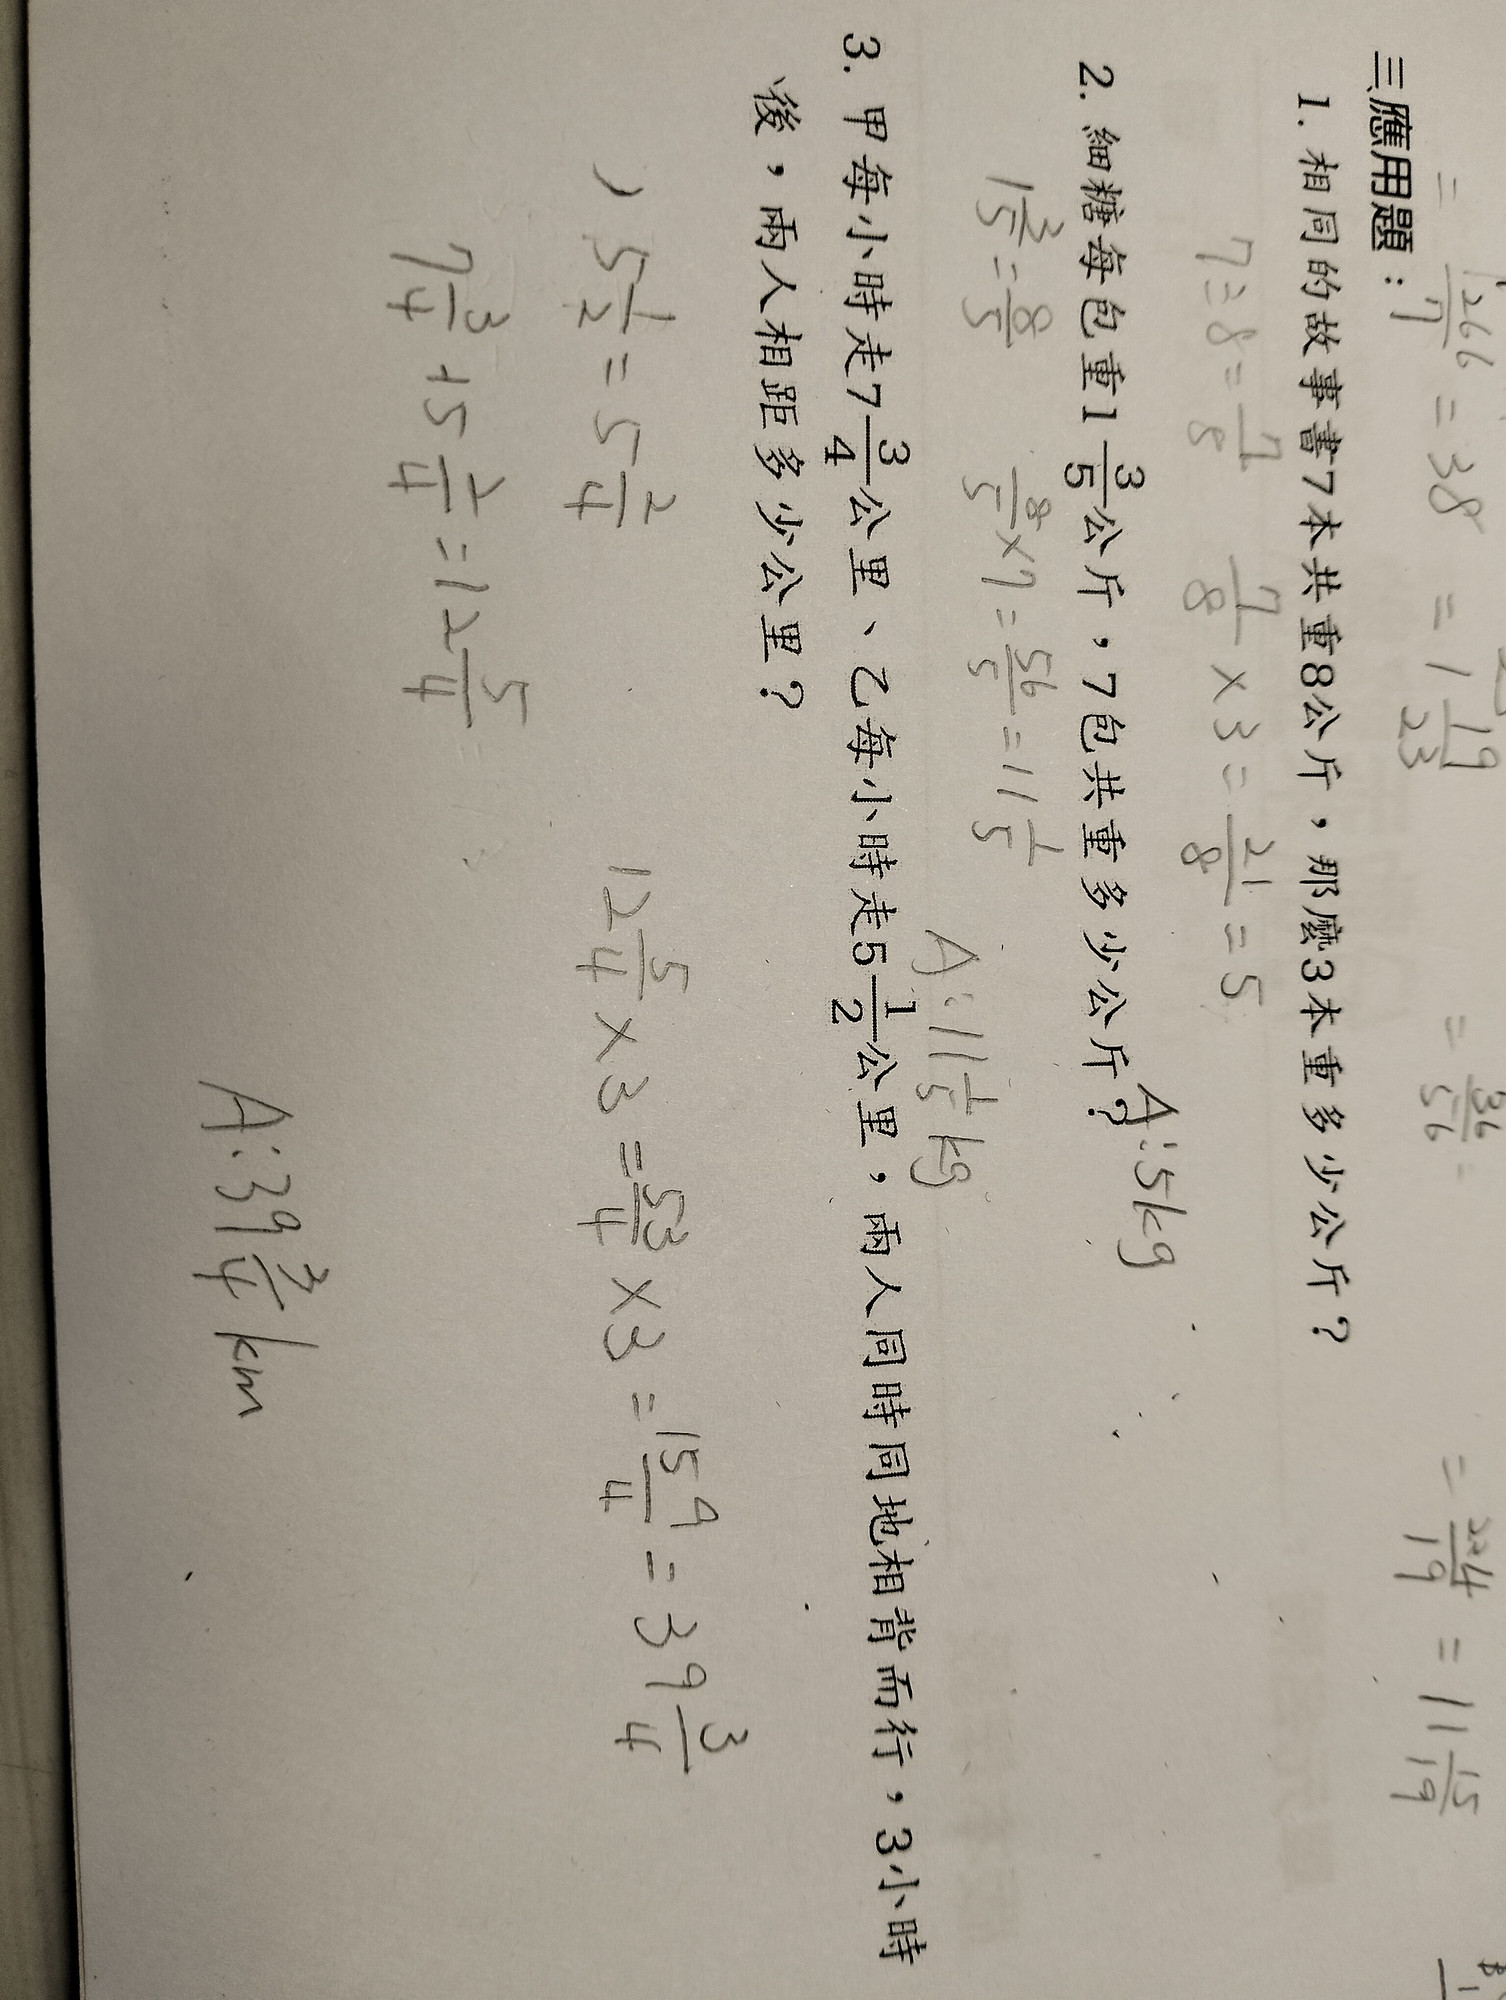 = 266/7 = 38
= 1 19/23
= 36/56 =
= 224/19 = 11 15/19
三應用題：
1. 相同的故事書7本共重8公斤，那麼3本重多少公斤？
7÷8=7/8 7/8×3=21/8=5
A:5kg
2. 細糖每包重1 3/5公斤，7包共重多少公斤？
1 3/5=8/5 8/5×7=56/5=11 1/5
A:11 1/5 kg
3. 甲每小時走7 3/4公里、乙每小時走5 1/2公里，兩人同時同地相背而行，3小時
後，兩人相距多少公里？
) 5 1/2=5 2/4 12 5/4×3=53/4×3=159/4=39 3/4
7 3/4+5 2/4=12 5/4
A:39 3/4 km